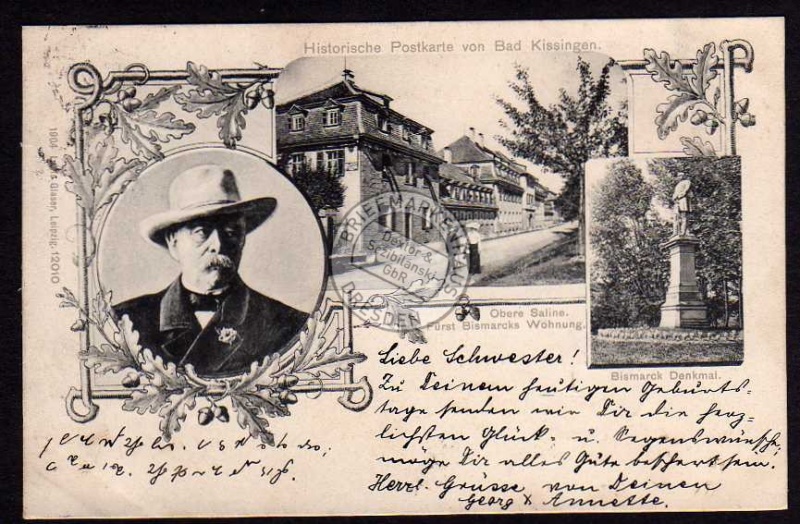 Historische Postkarte von Bad Kissingen.
Glaser, Leipzig. 12010
BRIEFMARKENHAUS
Dexler &
Szibilanski
GbR
DRESDEN
Obere Saline.
Fürst Bismarcks Wohnung.
Bismarck Denkmal.
Liebe Schwester!
Zu Deinem heutigen Geburts-
tage senden wir Dir die herz-
lichsten Glück- u. Segenswünsche,
möge Dir alles Gute beschert sein.
Herzl. Grüsse von Deinen
Georg & Annette.